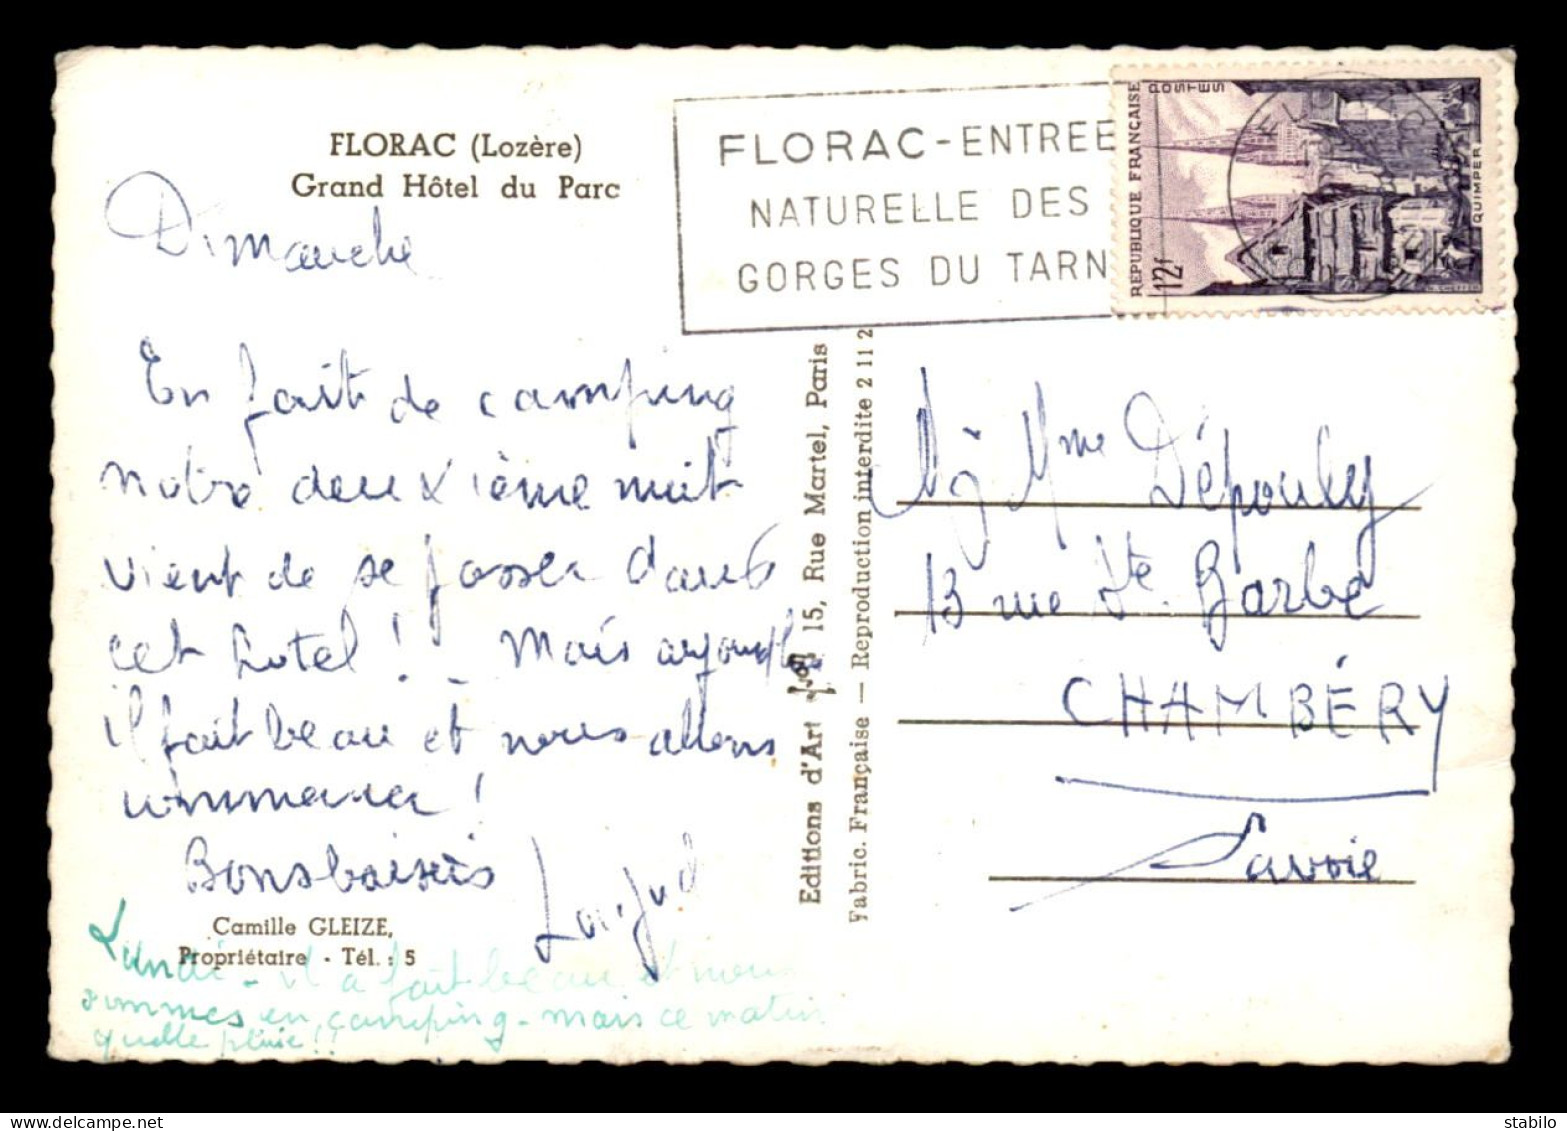 FLORAC (Lozère)
Grand Hôtel du Parc
Dimanche
En fait de camping
notre deuxième nuit
vient de se passer dans
cet hotel ! - Mais aujourd'hui
il fait beau et nous allons
commencer !
Bons baisers
Camille GLEIZE,
Propriétaire - Tél. : 5
Lundi - il a fait beau et nous
sommes en camping - mais ce matin
quelle pluie !!
Editions d'Art 15, Rue Martel, Paris
Fabric. Française — Reproduction interdite 2 11 2
FLORAC-ENTREE
NATURELLE DES
GORGES DU TARN
REPUBLIQUE FRANÇAISE
POSTES
12f
QUIMPER
Mme Dépouly
13 rue Ste. Barbe
CHAMBÉRY
Savoie
stabilo